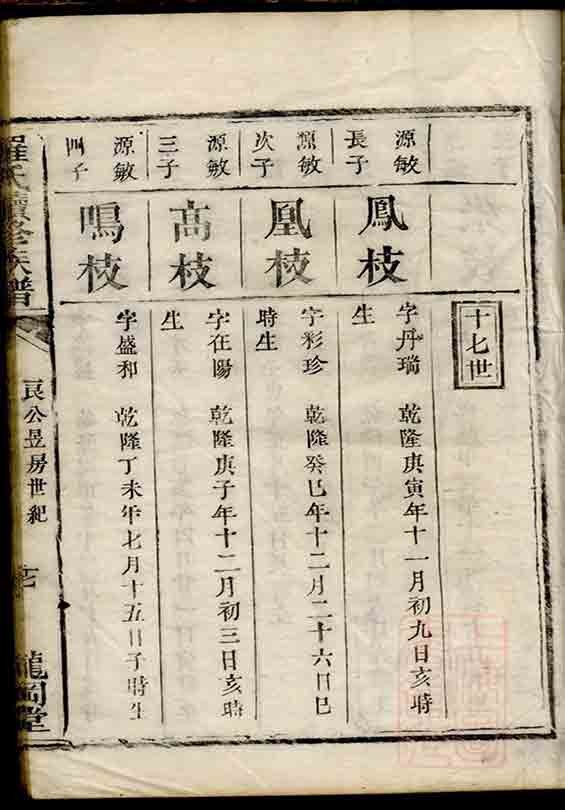 十七世
源敏
長子
鳳枝
字丹瑞 乾隆庚寅年十一月初九日亥時
生
源敏
次子
凰枝
字彩珍 乾隆癸巳年十二月二十六日巳
時生
源敏
三子
高枝
字在陽 乾隆庚子年十二月初三日亥時
生
源敏
四子
鳴枝
字盛和 乾隆丁未年七月十五日子時生
羅氏續修族譜
良公昱房世紀
龍岡堂